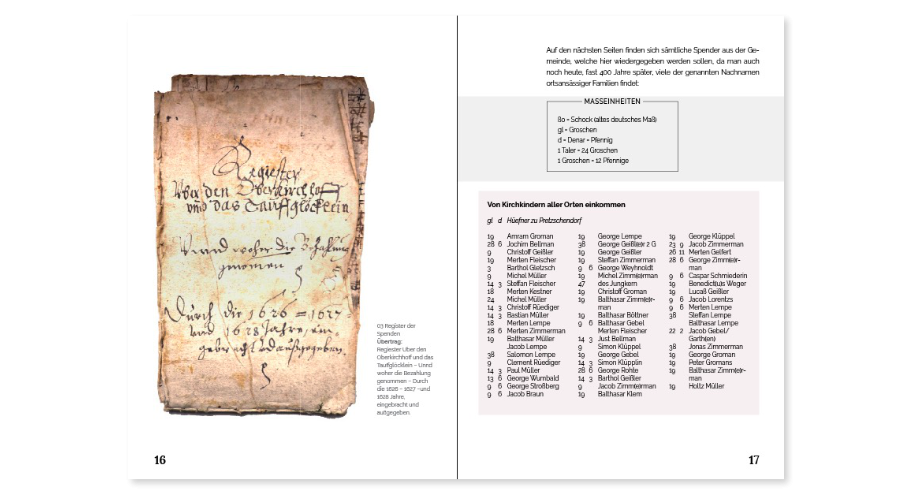 Register
Uber den Oberkirchhoff
vnd das Tauffglöcklein
Vnnd woher die Bezahlung
genomen
Durch die 1626 = 1627
1628 Jahre, ein
03 Register der
Spenden
Übertrag:
Regiester Über den
Oberkirchhoff und das
Tauffglöcklein – Unnd
woher die Bezahlung
genommen – Durch
die 1626 - 1627 -und
1628 Jahre,
eingebracht und
außgegeben.
16
Auf den nächsten Seiten finden sich sämtliche Spender aus der Ge-
meinde, welche hier wiedergegeben werden sollen, da man auch
noch heute, fast 400 Jahre später, viele der genannten Nachnamen
ortsansässiger Familien findet:
MASSEINHEITEN
ßo = Schock (altes deutsches Maß)
gl = Groschen
d = Denar = Pfennig
1 Taler = 24 Groschen
1 Groschen = 12 Pfennige
Von Kirchkindern aller Orten einkommen
gl d Hüefner zu Pretzschendorf
19 Amram Groman
28 6 Jochim Bellman
9 Christoff Geißler
19 Merten Fleischer
3 Barthol Gletzsch
9 Michel Müller
14 3 Steffan Fleischer
18 Merten Kestner
24 Michel Müller
14 3 Christoff Rüediger
14 3 Bastian Müller
18 Merten Lempe
28 6 Merten Zimmerman
19 Balthasar Müller
Jacob Lempe
38 Salomon Lempe
9 Clement Rüediger
14 3 Paul Müller
13 6 George Wumbald
9 6 George Stroßberg
9 6 Jacob Braun
19 George Lempe
38 George Geißler 2 G
19 George Geißler
19 Steffan Zimmerman
9 6 George Weyhnoldt
19 Michel Zimmerman
47 des Jungkern
19 Christoff Groman
19 Balthasar Zimmer-
man
19 Balthasar Böttner
9 6 Balthasar Gebel
Merten Fleischer
14 3 Just Bellman
9 Simon Klüppel
19 George Gebel
14 3 Simon Klüpplin
28 6 George Rohte
14 3 Barthol Geißler
9 Jacob Zimmerman
19 Balthasar Klem
19 George Klüppel
23 9 Jacob Zimmerman
26 11 Merten Geifert
28 6 George Zimmer-
man
9 6 Caspar Schmiederin
19 Benedictus Weger
19 Lucaß Geißler
9 6 Jacob Lorentzs
9 6 Merten Lempe
38 Steffan Lempe
Balthasar Lempe
22 2 Jacob Gebel/
Garth(en)
38 Jonas Zimmerman
19 George Groman
19 Peter Gromans
19 Balthasar Zimmer-
man
19 Holtz Müller
17